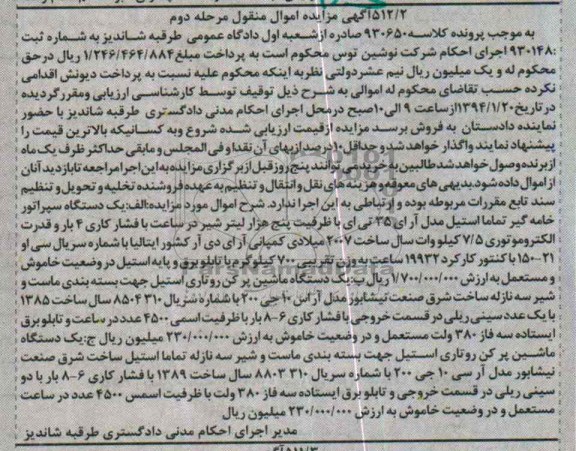 ۵۱۲/۲آگهی مزایده اموال منقول مرحله دوم
به موجب پرونده کلاسه۹۳۰۶۵۰ صادره ازشعبه اول دادگاه عمومی طرقبه شاندیز به شماره ثبت
۹۳۰۱۴۸: اجرای احکام شرکت نوشین توس محکوم است به پرداخت مبلغ۱/۲۴۶/۴۶۴/۸۸۴ ریال درحق
محکوم له و یک میلیون ریال نیم عشردولتی نظربه اینکه محکوم علیه نسبت به پرداخت دیونش اقدامی
نکرده حسب تقاضای محکوم له اموالی به شرح ذیل توقیف توسط کارشناسی ارزیابی ومقررگردیده
درتاریخ۱۳۹۴/۱/۲۰ازساعت ۹ الی۱۰صبح درمحل اجرای احکام مدنی دادگستری طرقبه شاندیز با حضور
نماینده دادستان به فروش برسد مزایده ازقیمت ارزیابی شده شروع وبه کسانیکه بالاترین قیمت را
پیشنهاد نمایند واگذار خواهدشد وحداقل۱۰درصدازبهای آن نقدا و فی المجلس و مابقی حداکثر ظرف یک ماه
ازبرنده وصول خواهدشدطالبین به خرید می توانند پنج روزقبل ازبرگزاری مزایده به این اجرا مراجعه تا بازدید آنان
ازاموال داده شود.بدیهی های معوقه و هزینه های نقل و انتقال و تنظیم به عهده فروشنده تخلیه و تحویل و تنظیم
سند تابع مقررات مربوطه بوده و ارتباطی به این اجرا ندارد. شرح اموال مورد مزایده:الف:یک دستگاه سپراتور
خامه گیر تماما استیل مدل آر ای ۳۵ تی ای با ظرفیت پنج هزار لیتر شیر در ساعت با فشار کاری ۴ بار و قدرت
الکتروموتوری ۷/۵ کیلو وات سال ساخت ۲۰۰۷ میلادی کمپانی آر ای دی آر کشور ایتالیا با شماره سریال سی او
۲۱-۱۵۰ با کنتور کار کرد ۱۹۹۳۲ ساعت به وزن تقریبی ۷۰۰ کیلوگرم با تابلو برق و پایه استیل در وضعیت خاموش
و مستعمل به ارزش ۱/۷۰۰/۰۰۰/۰۰۰ ریال ب:یک دستگاه ماشین پر کن روتاری استیل جهت بسته بندی ماست و
شیر سه نازله ساخت شرق صنعت نیشابور مدل آر اس ۱۰ جی ۲۰۰ با شماره سریال ۳۱۰ ۸۵۰۴ سال ساخت ۱۳۸۵
با یک عدد سینی ریلی در قسمت خروجی با فشار کاری ۶-۸ بار با ظرفیت اسمی ۴۵۰۰ عدد در ساعت و تابلو برق
ایستاده سه فاز ۳۸۰ ولت مستعمل و در وضعیت خاموش به ارزش ۲۳۰/۰۰۰/۰۰۰ میلیون ریال ج:یک دستگاه
ماشین پر کن روتاری استیل جهت بسته بندی ماست و شیر سه نازله تماما استیل ساخت شرق صنعت
نیشابور مدل آر سی ۱۰ جی ۲۰۰ با شماره سریال ۳۱۰ ۸۸۰۳ سال ساخت ۱۳۸۹ با فشار کاری ۶-۸ بار با دو
سینی ریلی در قسمت خروجی و تابلو برق ایستاده سه فاز ۳۸۰ ولت با ظرفیت اسمس ۴۵۰۰ عدد در ساعت
مستعمل و در وضعیت خاموش به ارزش ۲۳۰/۰۰۰/۰۰۰ میلیون ریال
مدیر اجرای احکام مدنی دادگستری طرقبه شاندیز